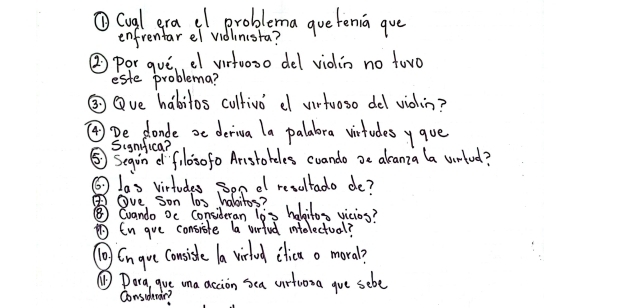 1. Cual era el problema que tenía que
enfrentar el violinista?
2. Por qué, el virtuoso del violín no tuvo
este problema?
3. Que hábitos cultivó el virtuoso del violin?
4. De donde se deriva la palabra virtudes y que
Significa?
5. Según el filósofo Aristoteles cuando se alcanza la virtud?
6. las virtudes son el resultado de?
7. Que son los habitos?
8. Cuando se consideran los habitos vicios?
9. En que consiste la virtud intelectual?
10. En que consiste la virtud ética o moral?
11. Para que una acción sea virtuosa que sebe
Considerar?